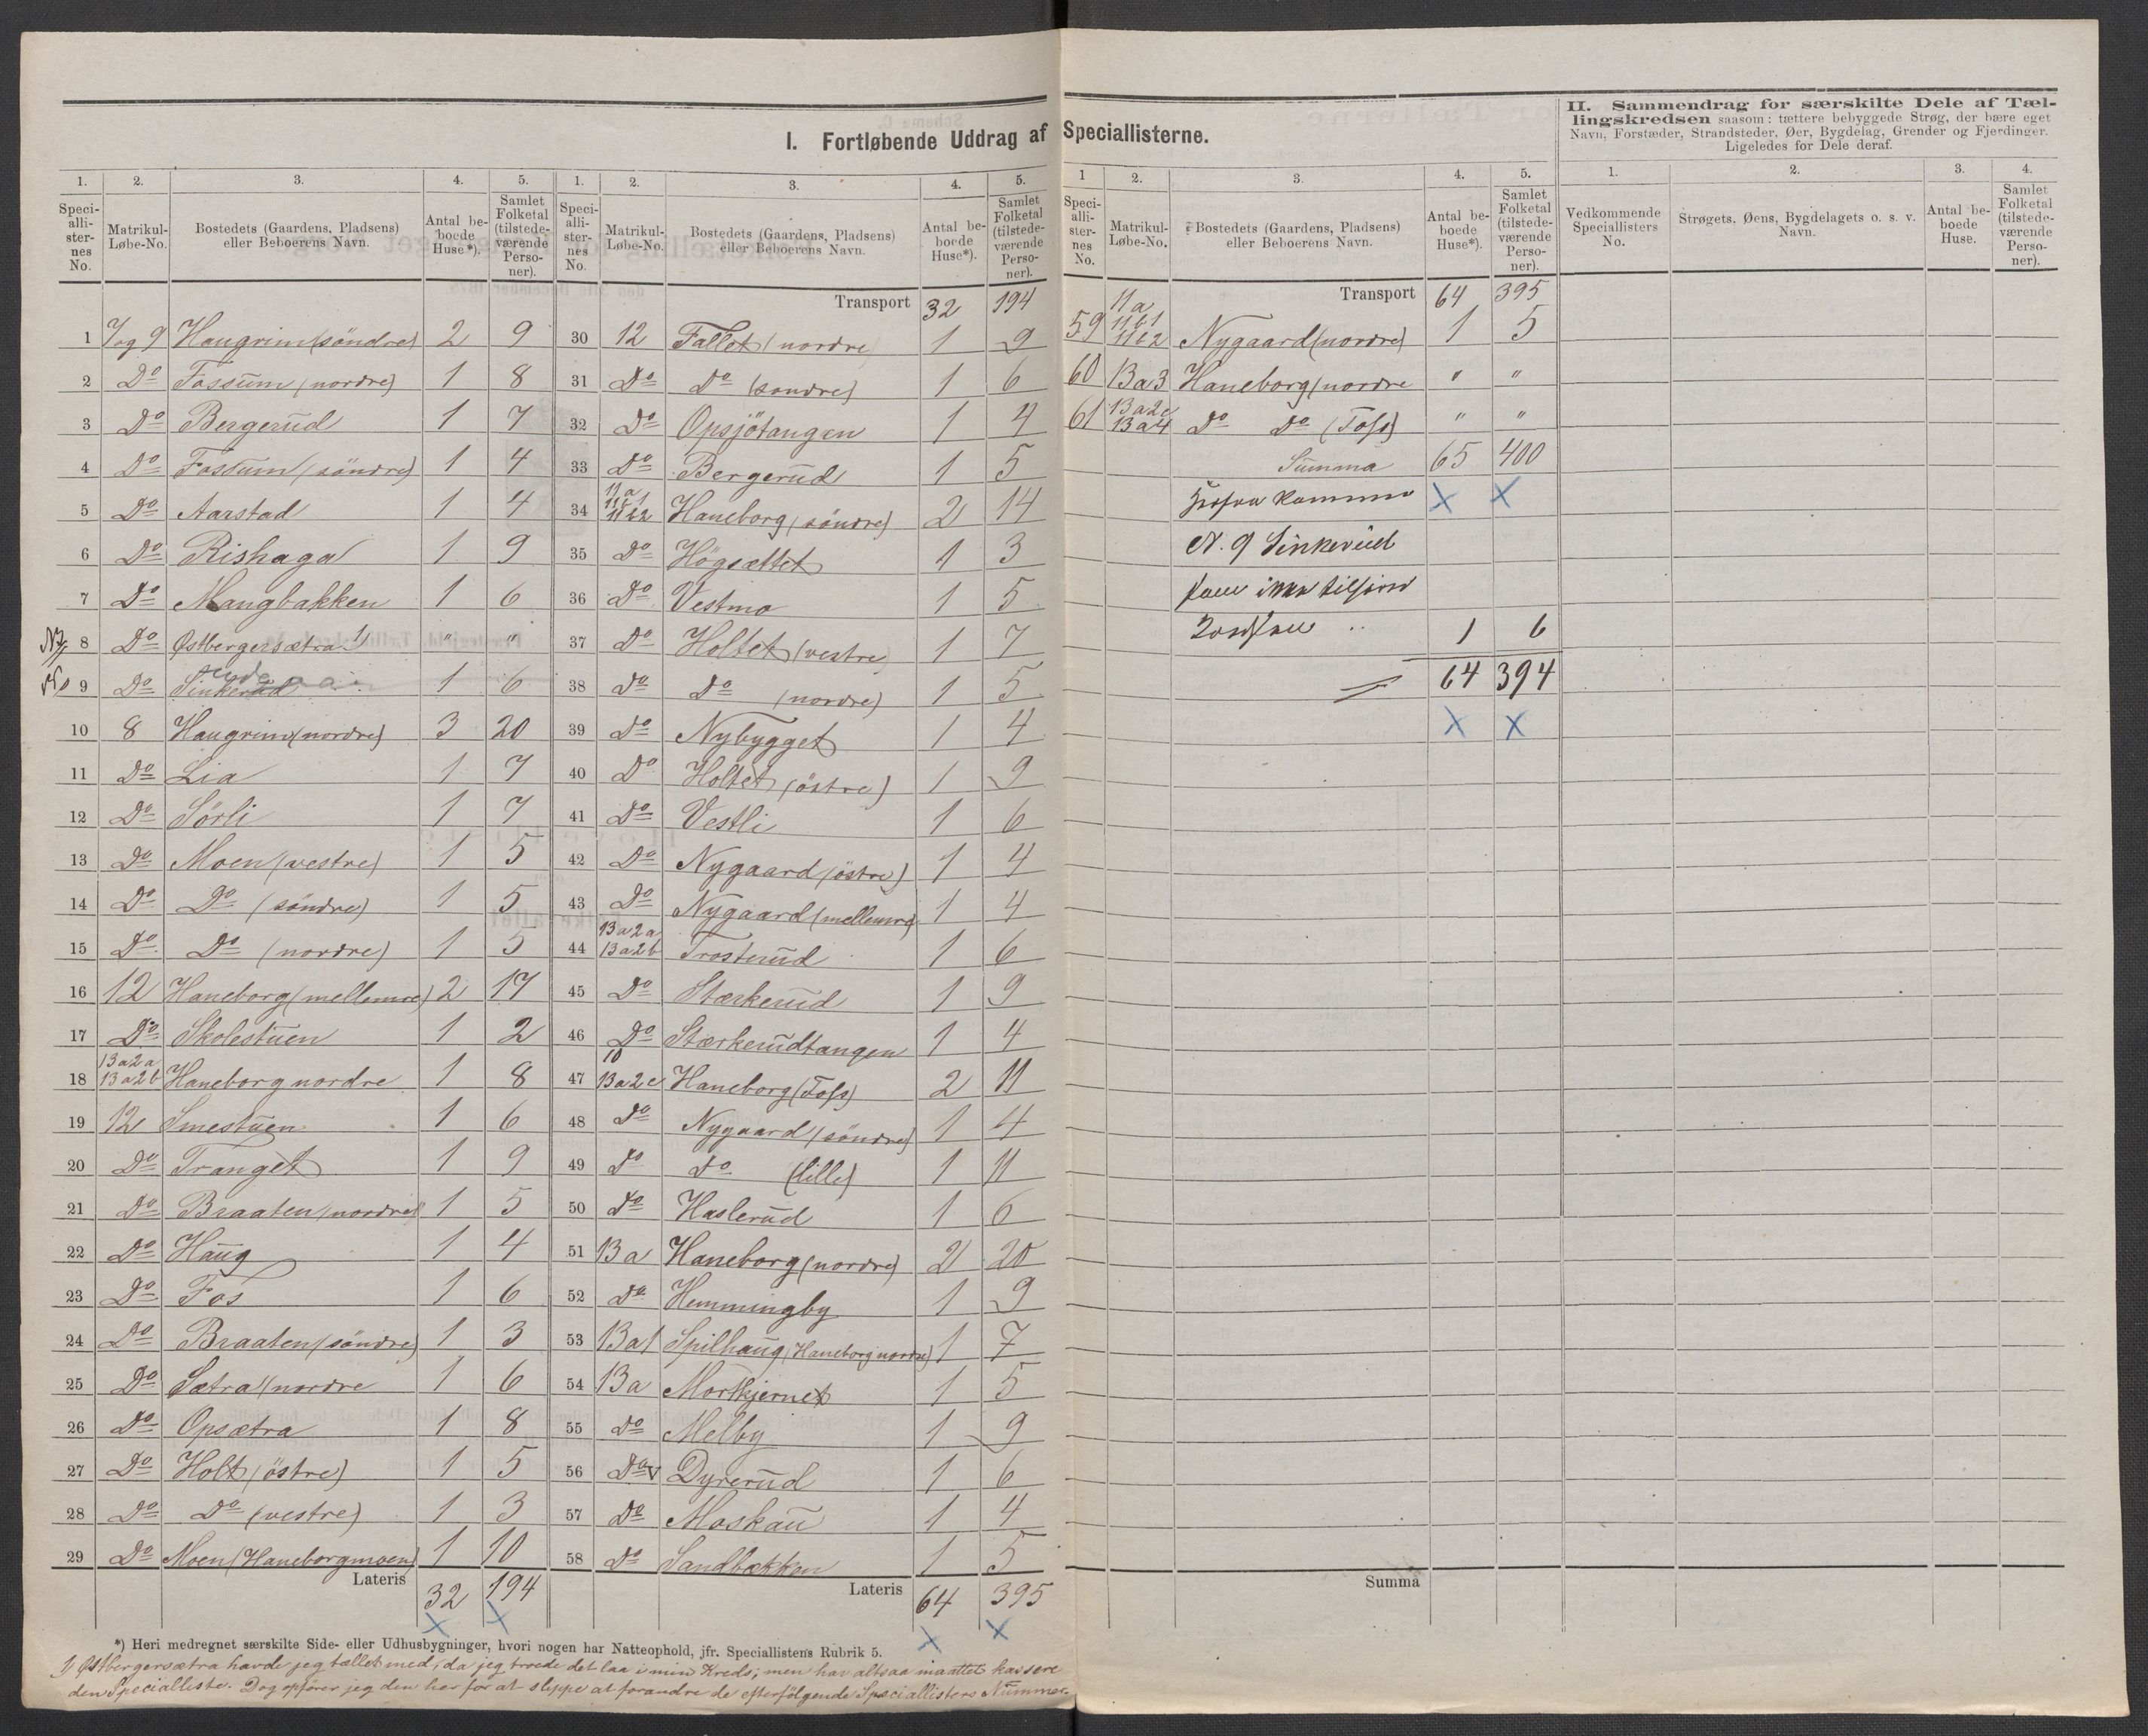 I. Fortløbende Uddrag af Speciallisterne.
1. 2. 3. 4. 5.
Speci-alli-ster-nes No. Matrikul-Løbe-No. Bostedets (Gaardens, Pladsens) eller Beboerens Navn. Antal be-boede Huse*). Samlet Folketal (tilstede-værende Perso-ner).
1 7 og 9 Haugrim (söndre) 2 9
2 Do Fossum (nordre) 1 8
3 Do Bergerud 1 7
4 Do Fossum (söndre) 1 4
5 Do Aarstad 1 4
6 Do Rishaga 1 9
7 Do Mangbakken 1 6
8 Do Østbergersætra 1) " "
9 Do Sinkerud 1 6
10 8 Haugrim (nordre) 3 20
11 Do Lia 1 7
12 Do Sörli 1 7
13 Do Moen (vestre) 1 5
14 Do Do (söndre) 1 5
15 Do Do (nordre) 1 5
16 12 Haneborg (mellemre) 2 17
17 Do Skolestuen 1 2
18 13a2a 13a2b Haneborg nordre 1 8
19 12 Smestuen 1 6
20 Do Tranget 1 9
21 Do Braaten (nordre) 1 5
22 Do Haug 1 4
23 Do Fos 1 6
24 Do Braaten (söndre) 1 3
25 Do Sætra (nordre 1 6
26 Do Opsætra 1 8
27 Do Holt (östre) 1 5
28 Do Do (vestre) 1 3
29 Do Moen (Haneborgmoen) 1 10
Lateris 32 194
1. 2. 3. 4. 5.
Speci-alli-ster-nes No. Matrikul-Løbe-No. Bostedets (Gaardens, Pladsens) eller Beboerens Navn. Antal be-boede Huse*). Samlet Folketal (tilstede-værende Perso-ner).
Transport 32 194
30 12 Fallet (nordre 1 9
31 Do Do (söndre) 1 6
32 Do Opsjötangen 1 4
33 Do Bergerud 1 5
34 11a 11b1 11b2 Haneborg (söndre) 2 14
35 Do Högsættet 1 3
36 Do Vestmo 1 5
37 Do Holtet (vestre) 1 7
38 Do Do (nordre) 1 5
39 Do Nybygget 1 4
40 Do Holtet (östre) 1 9
41 Do Vestli 1 6
42 Do Nygaard (östre) 1 4
43 Do Nygaard (mellemre) 1 4
44 13a2a 13a2b Trosterud 1 6
45 Do Stærkerud 1 9
46 Do Stærkerudtangen 1 4
47 10 13a2c Haneborg (Foss) 2 11
48 Do Nygaard (söndre) 1 4
49 Do Do (lille) 1 11
50 Do Haslerud 1 6
51 13a Haneborg (nordre) 2 20
52 Do Hemmingby 1 9
53 13a1 Spilhaug (Haneborg nordre) 1 7
54 13a Mortkjernet 1 5
55 Do Melby 1 9
56 Do Dyrerud 1 6
57 Do Moskau 1 4
58 Do Sandbækken 1 5
Lateris 64 395
*) Heri medregnet særskilte Side- eller Udhusbygninger, hvori nogen har Natteophold, jfr. Speciallistens Rubrik 5.
1) Østbergersætra havde jeg tællet med, da jeg troede det laa i min Kreds; men har altsaa maattet kassere
den Specialliste. Dog opförer jeg den her for at slippe at forandre de efterfölgende Speciallisters Nummer.
1 2. 3. 4. 5.
Speci-alli-ster-nes No. Matrikul-Løbe-No. Bostedets (Gaardens, Pladsens) eller Beboerens Navn. Antal be-boede Huse*). Samlet Folketal (tilstede-værende Perso-ner).
Transport 64 395
59 11a 11b1 11b2 Nygaard (nordre) 1 5
60 13a3 Haneborg (nordre " "
61 13a2c 13a4 Do Do (Foss) " "
Summa 65 400
N. 9 Sinkerud
1 6
64 394
Summa
II. Sammendrag for særskilte Dele af Tæl-
lingskredsen saasom: tættere bebyggede Strøg, der bære eget
Navn, Forstæder, Strandsteder, Øer, Bygdelag, Grender og Fjerdinger.
Ligeledes for Dele deraf.
1. 2. 3. 4.
Vedkommende Speciallisters No. Strøgets, Øens, Bygdelagets o. s. v. Navn. Antal be-boede Huse. Samlet Folketal (tilstede-værende Perso-ner).